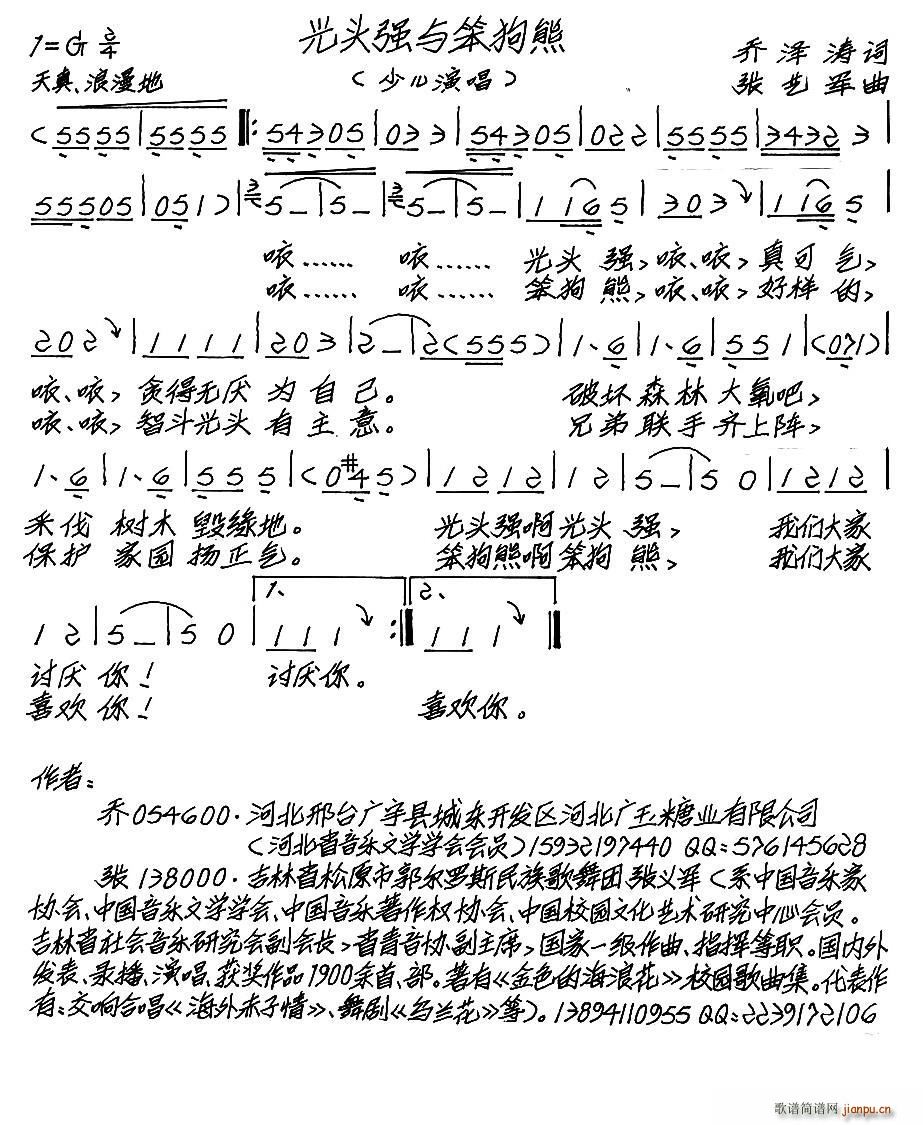 光头强与笨狗熊
1=G 2/4
乔泽涛词
天真、浪漫地
(少儿演唱)
张艺军曲
(5555|5555‖:54305|033|54305|022|5555|34323|
55505|051)|5–|5–|5–|5–|1165|303|1165|
咴…… 咴…… 光头强,咴、咴,真可气,
咴…… 咴…… 笨狗熊,咴、咴,好样的,
202|1111|203|2–|2(555)|1、6|1、6|551|(071)|
咴、咴,贪得无厌为自己。 破坏森林大氧吧,
咴、咴,智斗光头有主意。 兄弟联手齐上阵,
1、6|1、6|555|(0#45)|1212|12|5–|50|1212|
采伐树木毁绿地。 光头强啊光头强, 我们大家
保护家园扬正气。 笨狗熊啊笨狗熊, 我们大家
1、 2、
12|5–|50|111:‖111‖
讨厌你! 讨厌你。
喜欢你! 喜欢你。
作者:
乔054600·河北邢台广宗县城东开发区河北广玉糖业有限公司
(河北省音乐文学学会会员)15932197440 QQ:576145628
张138000·吉林省松原市郭尔罗斯民族歌舞团 张义军(系中国音乐家
协会、中国音乐文学学会、中国音乐著作权协会、中国校园文化艺术研究中心会员。
吉林省社会音乐研究会副会长,省青音协副主席,国家一级作曲、指挥等职。国内外
发表、录播、演唱、获奖作品1900余首、部。著有《金色的海浪花》校园歌曲集。代表作
有:交响合唱《海外赤子情》、舞剧《乌兰花》等)。13894110955 QQ:2239172106
歌谱简谱网 jianpu.cn